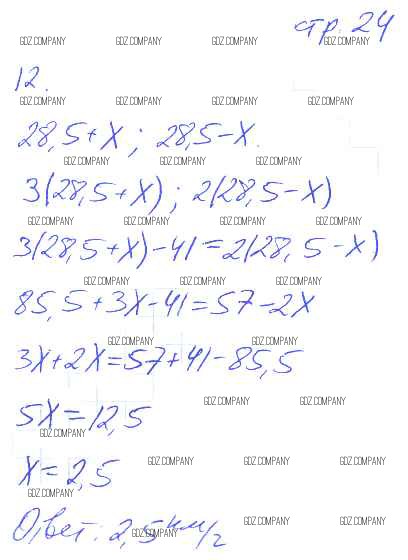 стр. 24
12.
28,5+x; 28,5-x.
3(28,5+x); 2(28,5-x)
3(28,5+x)-41=2(28,5-x)
85,5+3x-41=57-2x
3x+2x=57+41-85,5
5x=12,5
x=2,5
Ответ: 2,5 км/г
GDZ.COMPANY GDZ.COMPANY GDZ.COMPANY GDZ.COMPANY
GDZ.COMPANY GDZ.COMPANY GDZ.COMPANY GDZ.COMPANY
GDZ.COMPANY GDZ.COMPANY GDZ.COMPANY
GDZ.COMPANY GDZ.COMPANY GDZ.COMPANY GDZ.COMPANY
GDZ.COMPANY GDZ.COMPANY GDZ.COMPANY
GDZ.COMPANY GDZ.COMPANY GDZ.COMPANY
GDZ.COMPANY GDZ.COMPANY
GDZ.COMPANY
GDZ.COMPANY GDZ.COMPANY GDZ.COMPANY
GDZ.COMPANY
GDZ.COMPANY GDZ.COMPANY
GDZ.COMPANY